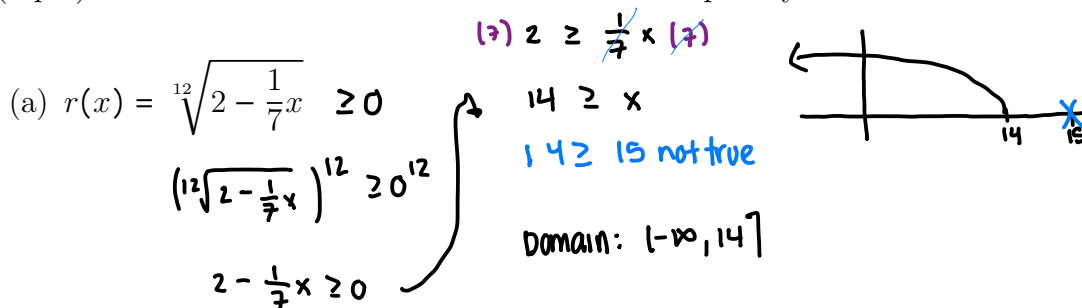 (a) r(x) = ¹²√(2 − 1/7 x) ≥ 0
(¹²√(2 − 1/7 x))¹² ≥ 0¹²
2 − 1/7 x ≥ 0
(7) 2 ≥ 1/7 x (7)
14 ≥ x
14 ≥ 15 not true
Domain: (-∞, 14]
14
15